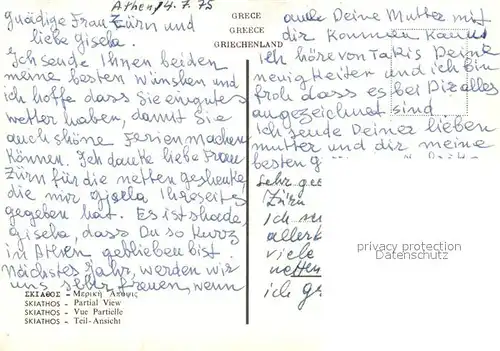 Athen 14.7.75
gnädige Frau Zürn und
liebe Gisela.
Ich sende Ihnen beiden
meine besten Wünshen und
ich hoffe dass Sie ein gutes
wetter haben, damit Sie
auch shöne Ferien machen
können. Ich danke liebe Frau
Zürn für die netten geshenke,
die mir Gisela Ihreseits
gegeben hat. Es ist shade,
Gisela, dass Du so kurz
in Athen geblieben bist.
Nächstes Jahr, werden wir
uns sehr freuen, wenn
ΣΚΙΑΘΟΣ - Μερική Άποψις
SKIATHOS - Partial View
SKIATHOS - Vue Partielle
SKIATHOS - Teil-Ansicht
GRECE
GREECE
GRIECHENLAND
auch Deine Mutter mit
dir kommen kann
Ich höre von Takis Deine
neuigkeiten und ich bin
froh dass es bei Dir alles
ausgezeichnet sind.
Ich sende Deiner lieben
mutter und dir meine
besten
Sehr
Zürn
ich
viele
netten
ich
privacy protection
Datenschutz